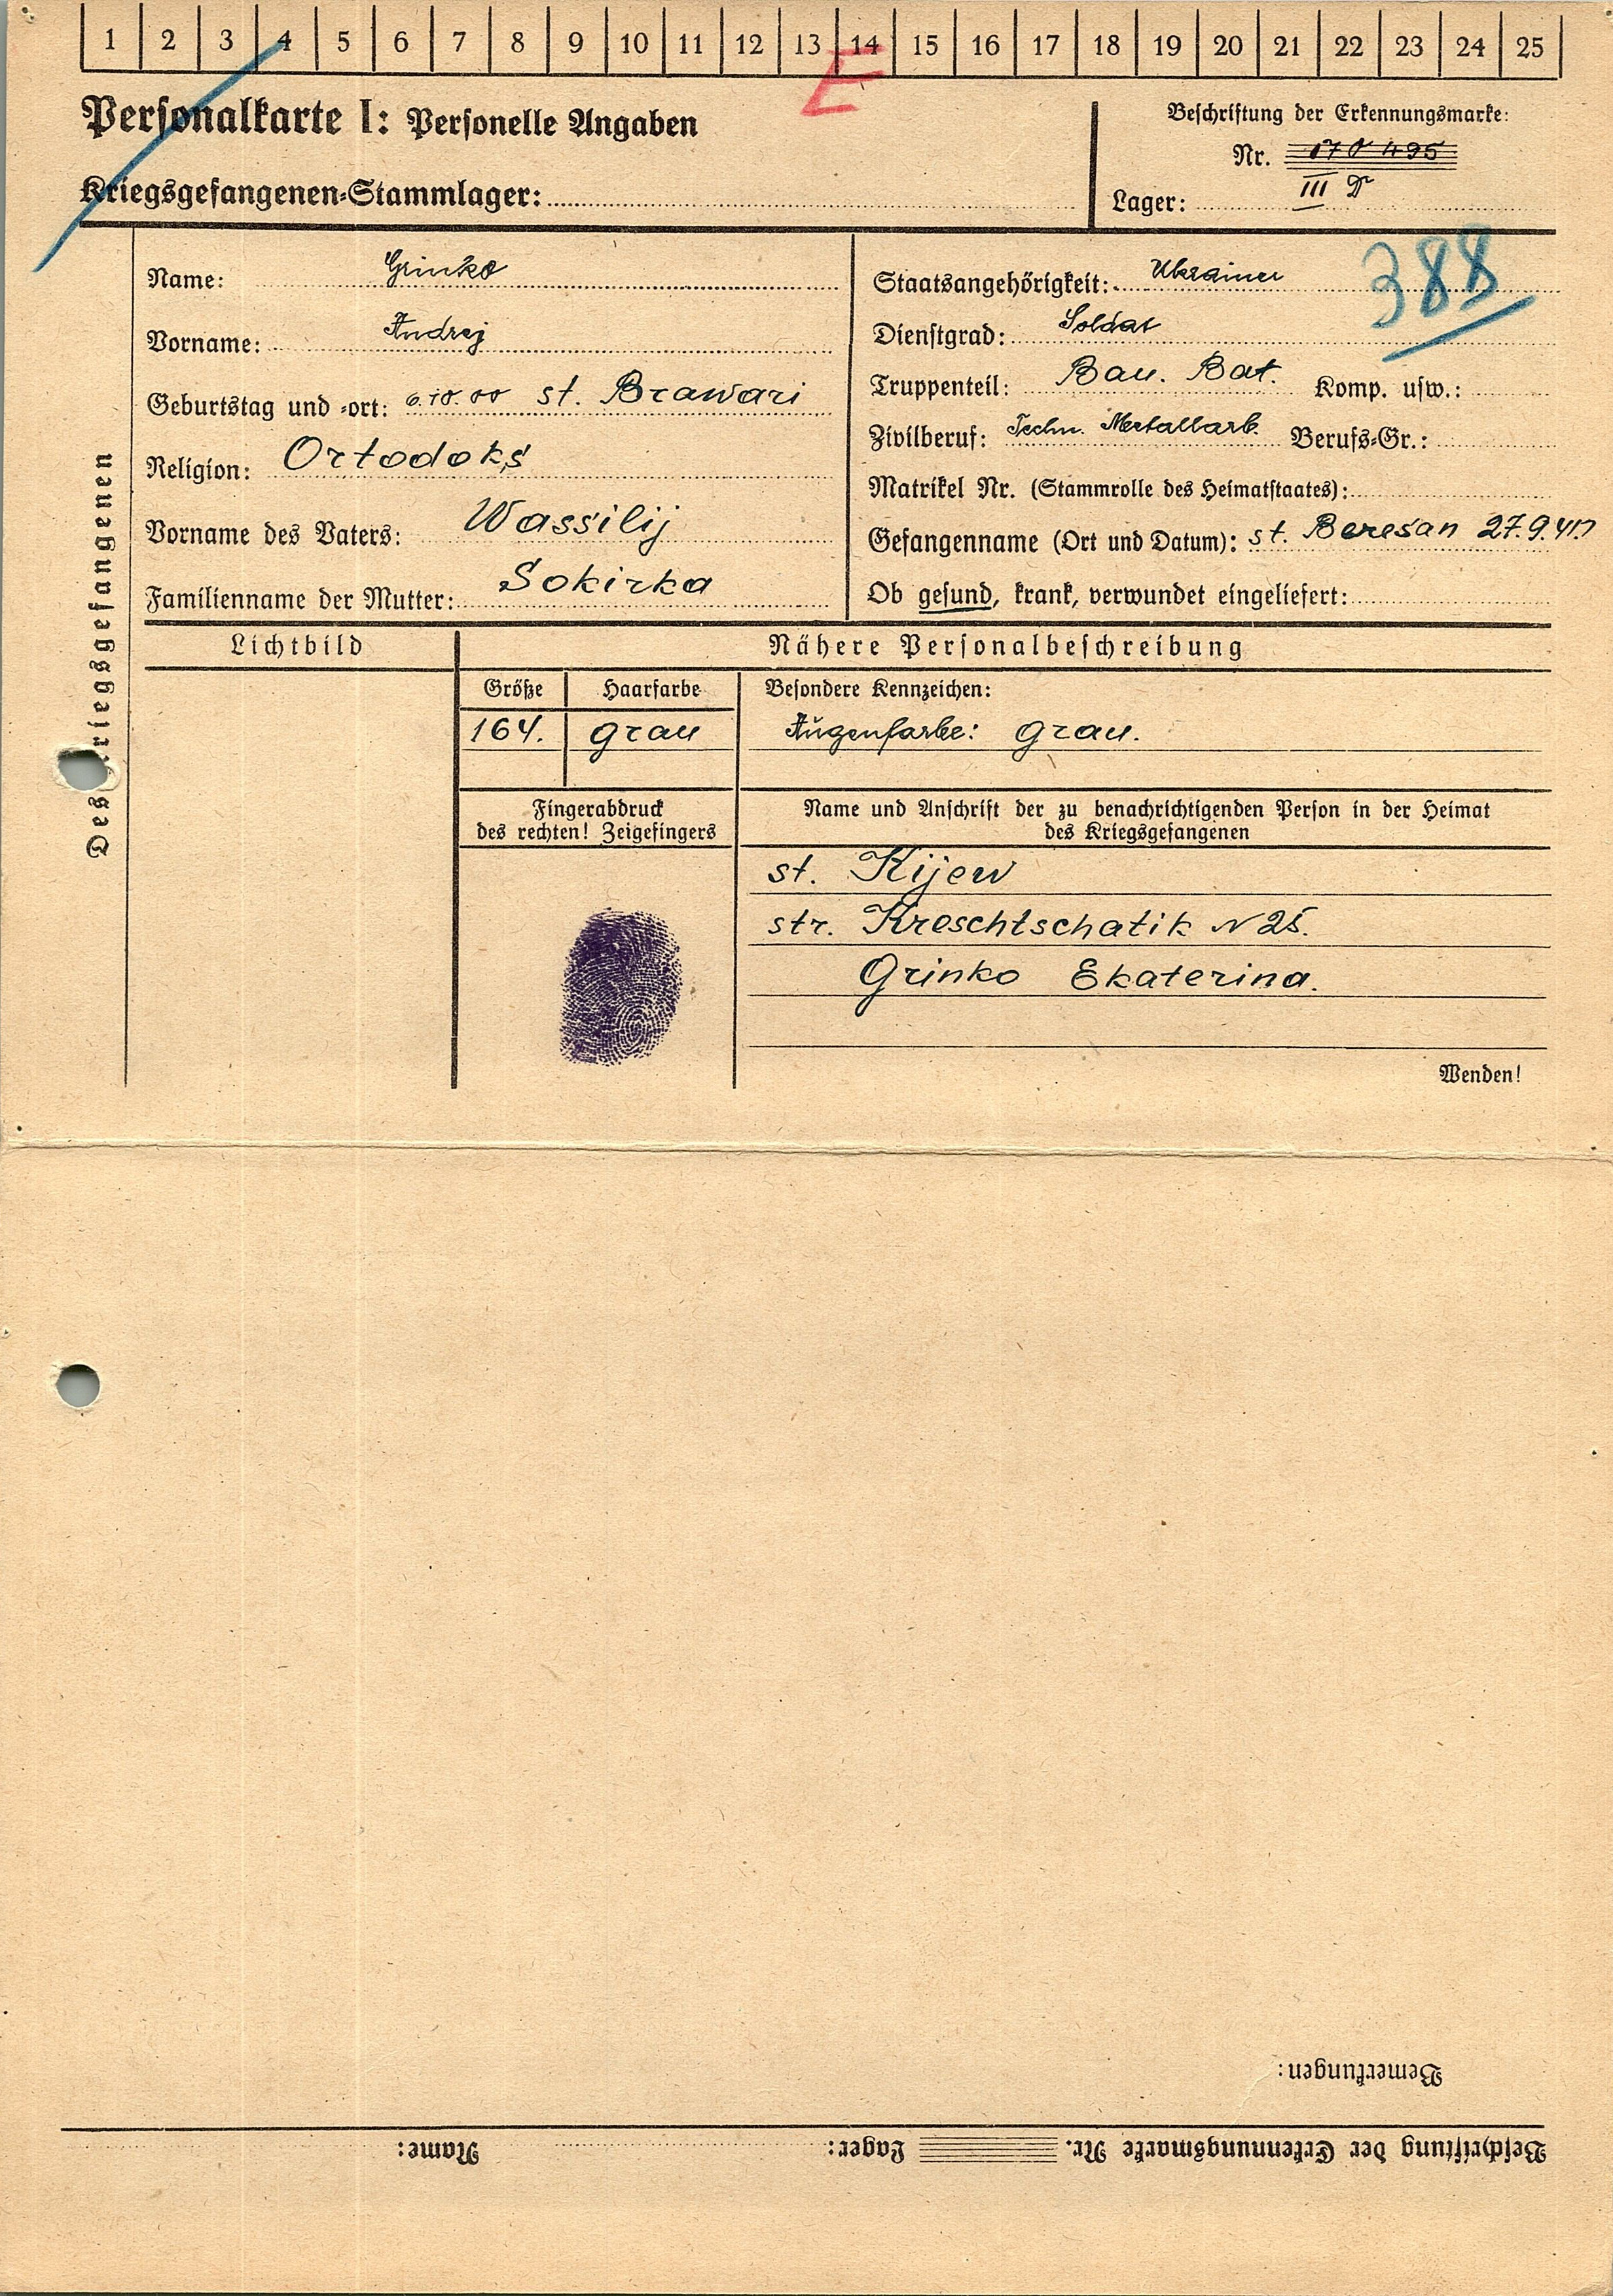 1 2 3 4 5 6 7 8 9 10 11 12 13 14 15 16 17 18 19 20 21 22 23 24 25
E
Personalkarte I: Personelle Angaben
Kriegsgefangenen-Stammlager:
Beschriftung der Erkennungsmarke:
Nr.
Lager: III D
388
Des Kriegsgefangenen
Name: Grinko
Vorname: Andrej
Geburtstag und -ort: 6.10.00 st. Brawari
Religion: Ortodoks
Vorname des Vaters: Wassilij
Familienname der Mutter: Sokirka
Staatsangehörigkeit: Ukrainer
Dienstgrad: Soldat
Truppenteil: Bau. Bat. Komp. usw.:
Zivilberuf: Techn. Metallarb. Berufs-Gr.:
Matrikel Nr. (Stammrolle des Heimatstaates):
Gefangenname (Ort und Datum): st. Beresan 27.9.41
Ob gesund, krank, verwundet eingeliefert:
Lichtbild
Nähere Personalbeschreibung
Größe Haarfarbe Besondere Kennzeichen:
164. grau Augenfarbe: grau.
Fingerabdruck
des rechten! Zeigefingers
Name und Anschrift der zu benachrichtigenden Person in der Heimat
des Kriegsgefangenen
st. Kijew
str. Kreschtschatik N 25.
Grinko Ekaterina.
Wenden!
Bemerkungen:
Beschriftung der Erkennungsmarke Nr. Lager: Name: